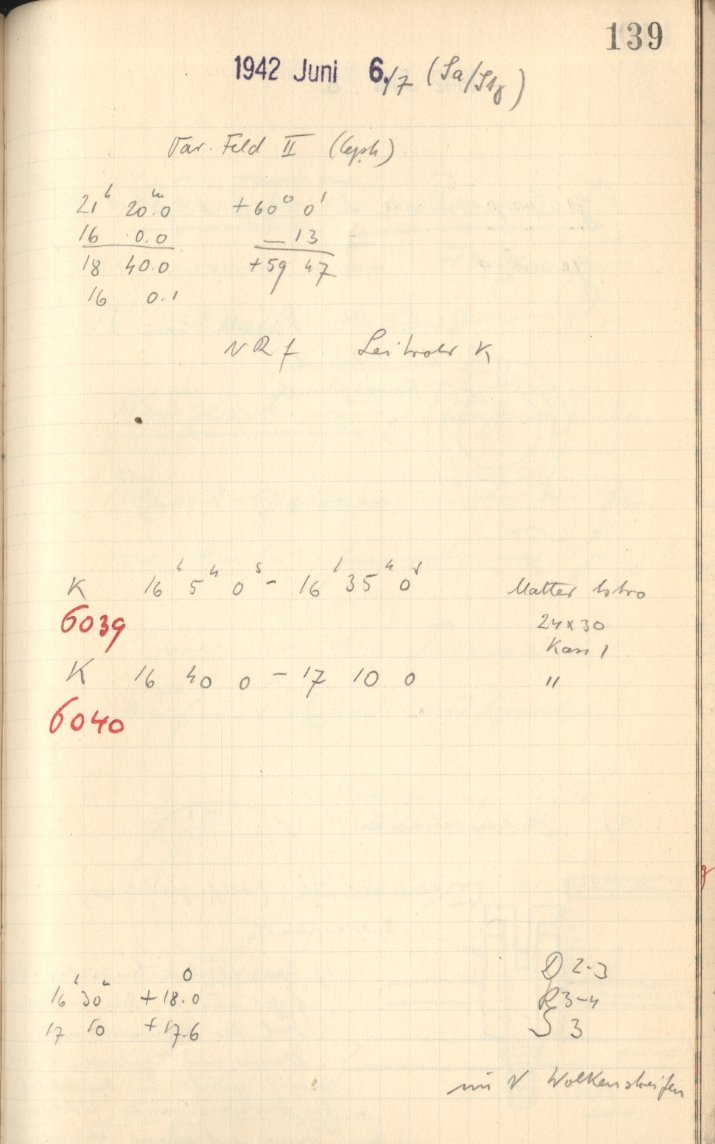 139
1942 Juni 6./7 (Sa/Stg)
Var. Feld II (Ceph)
21h 20m.0 +60° 0'
16 0.0 – 13
18 40.0 +59 47
16 0.1
N R f Leitrohr K
K 16h 5m 0s – 16h 35m 0s Matter Astro
6039 24x30
Kass 1
K 16 40 0 – 17 10 0 "
6040
16h 30m +18.0° D 2-3
17 10 +17.6 R 3-4
S 3
im N Wolkenstreifen